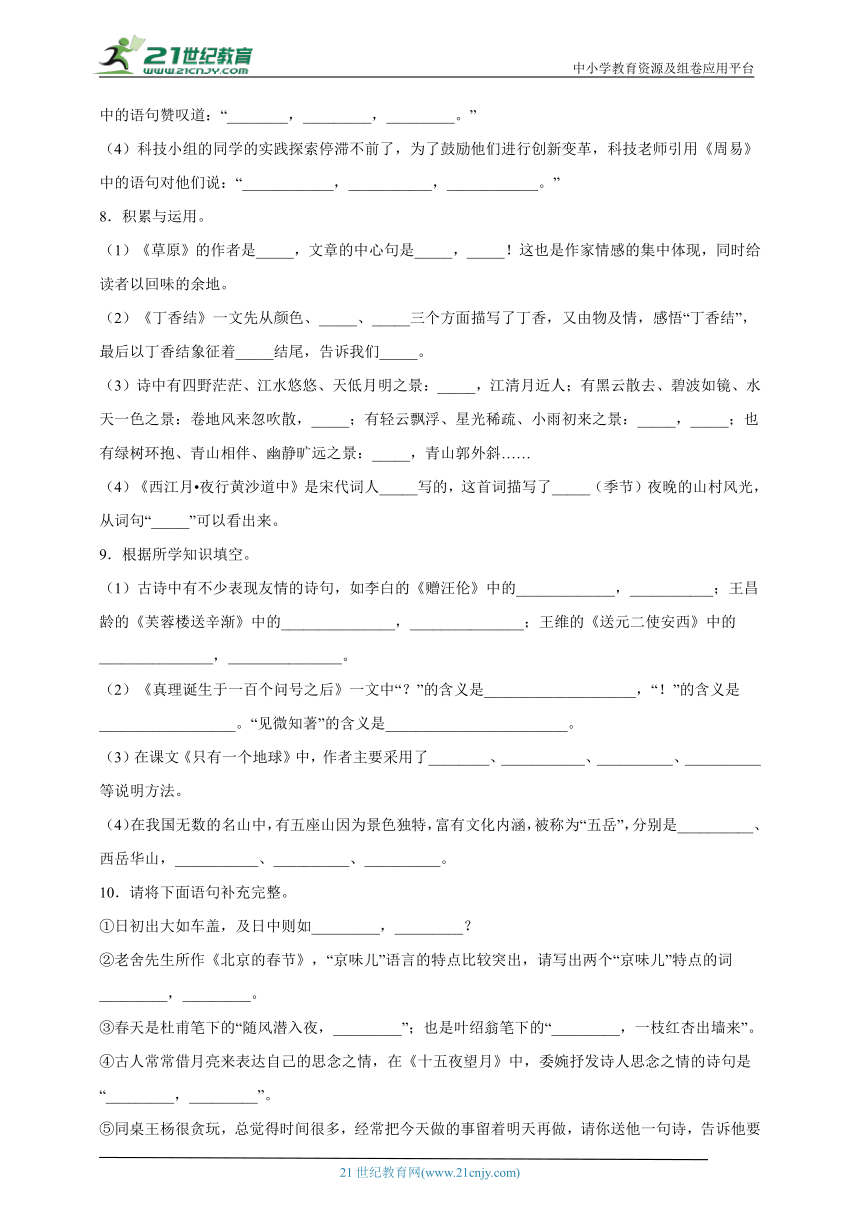 21世纪教育
WWW.21CNJY.COM
中小学教育资源及组卷应用平台
中的语句赞叹道：“________，_________，_________。”
（4）科技小组的同学的实践探索停滞不前了，为了鼓励他们进行创新变革，科技老师引用《周易》
中的语句对他们说：“____________，___________，____________。”
8．积累与运用。
（1）《草原》的作者是_____，文章的中心句是_____，_____！这也是作家情感的集中体现，同时给
读者以回味的余地。
（2）《丁香结》一文先从颜色、_____、_____三个方面描写了丁香，又由物及情，感悟“丁香结”，
最后以丁香结象征着_____结尾，告诉我们_____。
（3）诗中有四野茫茫、江水悠悠、天低月明之景：_____，江清月近人；有黑云散去、碧波如镜、水
天一色之景：卷地风来忽吹散，_____；有轻云飘浮、星光稀疏、小雨初来之景：_____，_____；也
有绿树环抱、青山相伴、幽静旷远之景：_____，青山郭外斜……
（4）《西江月•夜行黄沙道中》是宋代词人_____写的，这首词描写了_____（季节）夜晚的山村风光，
从词句“_____”可以看出来。
9．根据所学知识填空。
（1）古诗中有不少表现友情的诗句，如李白的《赠汪伦》中的_____________，___________；王昌
龄的《芙蓉楼送辛渐》中的_______________，_______________；王维的《送元二使安西》中的
_______________，_______________。
（2）《真理诞生于一百个问号之后》一文中“？”的含义是____________________，“！”的含义是
__________________。“见微知著”的含义是________________________。
（3）在课文《只有一个地球》中，作者主要采用了________、___________、__________、__________
等说明方法。
（4）在我国无数的名山中，有五座山因为景色独特，富有文化内涵，被称为“五岳”，分别是__________、
西岳华山，___________、__________、__________。
10．请将下面语句补充完整。
①日初出大如车盖，及日中则如_________，_________？
②老舍先生所作《北京的春节》，“京味儿”语言的特点比较突出，请写出两个“京味儿”特点的词
_________，_________。
③春天是杜甫笔下的“随风潜入夜，_________”；也是叶绍翁笔下的“_________，一枝红杏出墙来”。
④古人常常借月亮来表达自己的思念之情，在《十五夜望月》中，委婉抒发诗人思念之情的诗句是
“_________，_________”。
⑤同桌王杨很贪玩，总觉得时间很多，经常把今天做的事留着明天再做，请你送他一句诗，告诉他要
21世纪教育网(www.21cnjy.com)